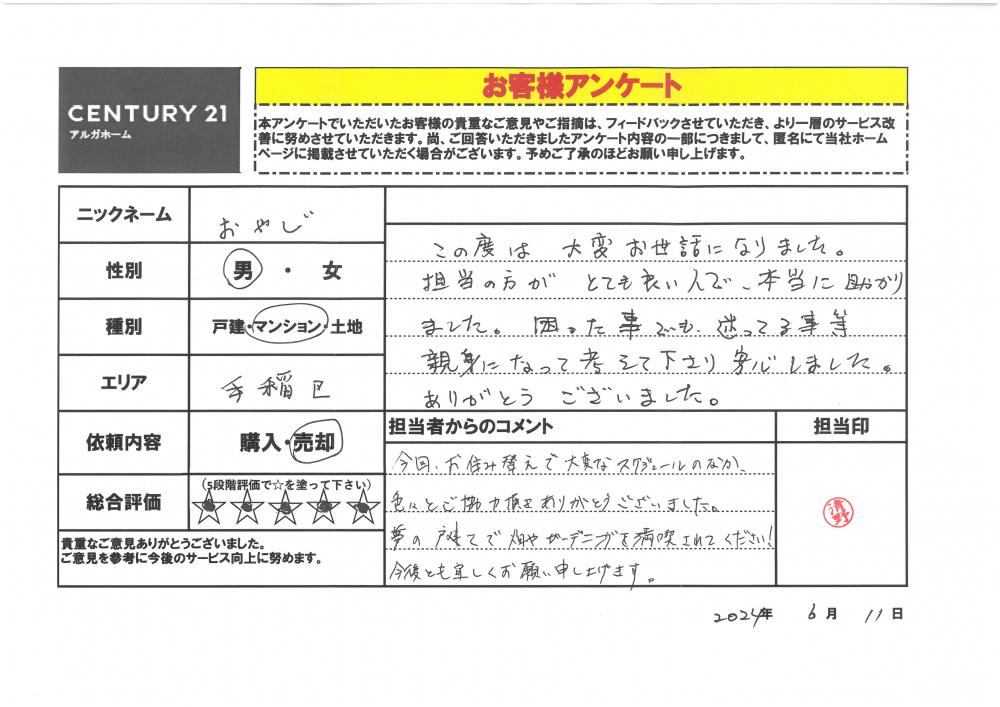 CENTURY 21
アルガホーム
お客様アンケート
本アンケートでいただいたお客様の貴重なご意見やご指摘は、フィードバックさせていただき、より一層のサービス改
善に努めさせていただきます。尚、ご回答いただきましたアンケート内容の一部につきまして、匿名にて当社ホーム
ページに掲載させていただく場合がございます。予めご了承のほどお願い申し上げます。
ニックネーム
おやじ
性別
男・女
種別
戸建・マンション・土地
エリア
手稲区
依頼内容
購入・売却
総合評価
(5段階評価で☆を塗って下さい)
★★★★★
貴重なご意見ありがとうございました。
ご意見を参考に今後のサービス向上に努めます。
この度は 大変お世話になりました。
担当の方が とても良い人で、本当に助かり
ました。困った事でも、迷ってる事等
親身になって考えて下さり安心しました。
ありがとう ございました。
担当者からのコメント
今回、お住み替えで大変なスケジュールのなか、
色々とご協力頂きありがとうございました。
夢の戸建てで畑やガーデニングを満喫されてください!
今後とも宜しくお願い申し上げます。
担当印
清野
2024年 6月 11日